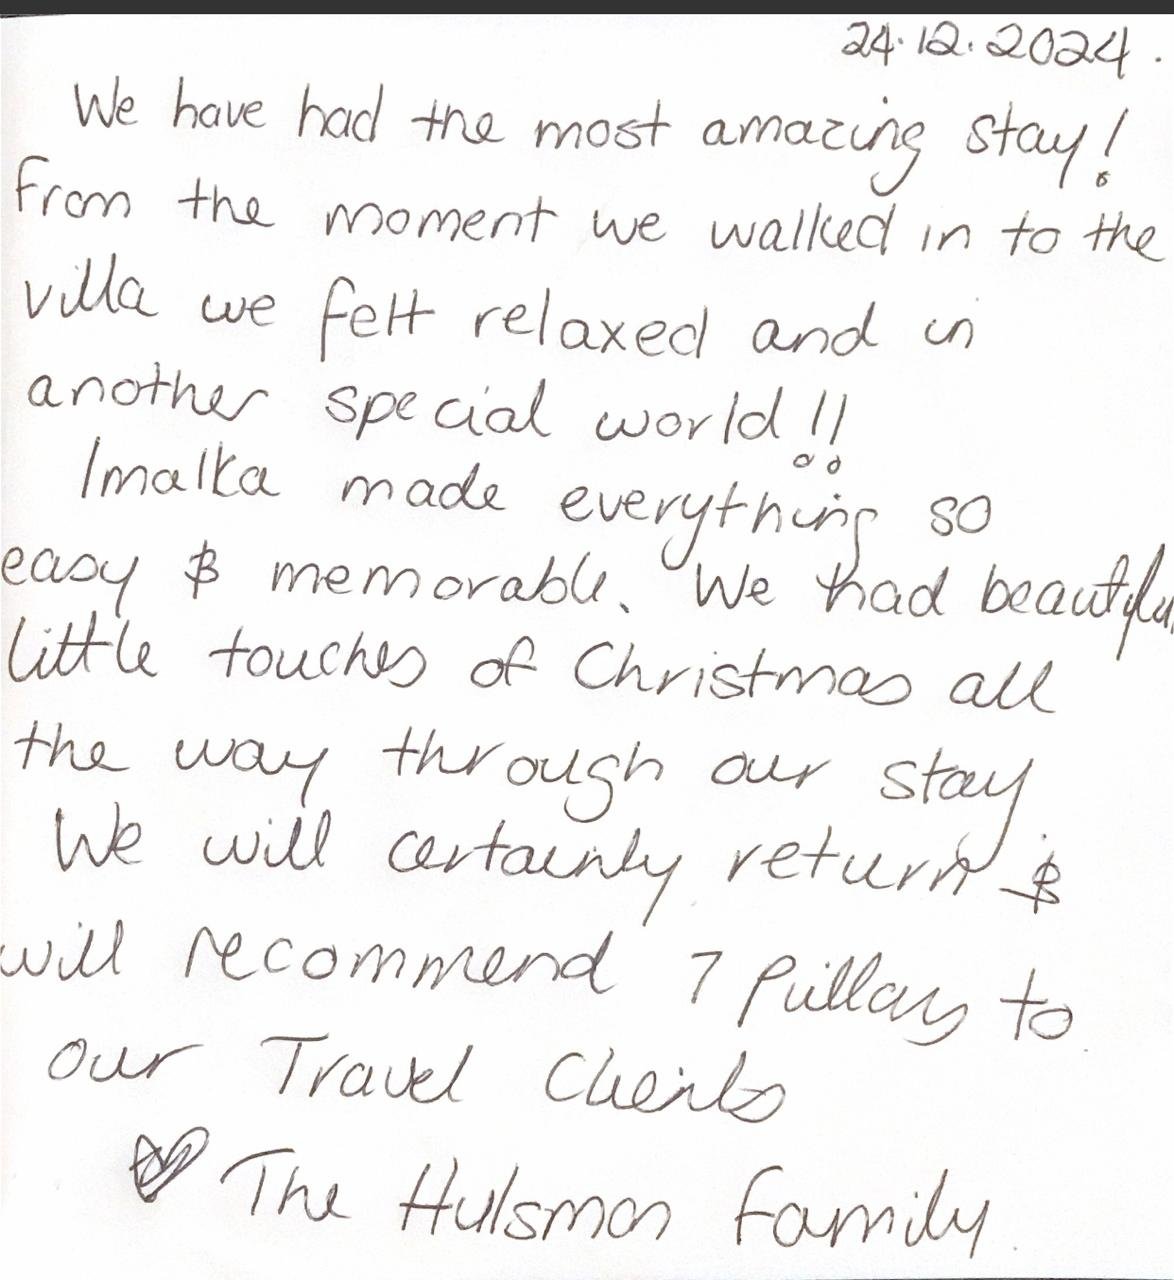 24.12.2024.
We have had the most amazing stay!
From the moment we walked in to the
villa we felt relaxed and in
another special world!!
Imalka made everything so
easy & memorable. We had beautiful
little touches of Christmas all
the way through our stay
We will certainly return &
will recommend 7 Pillars to
our Travel Clients
♡ The Hulsman Family.